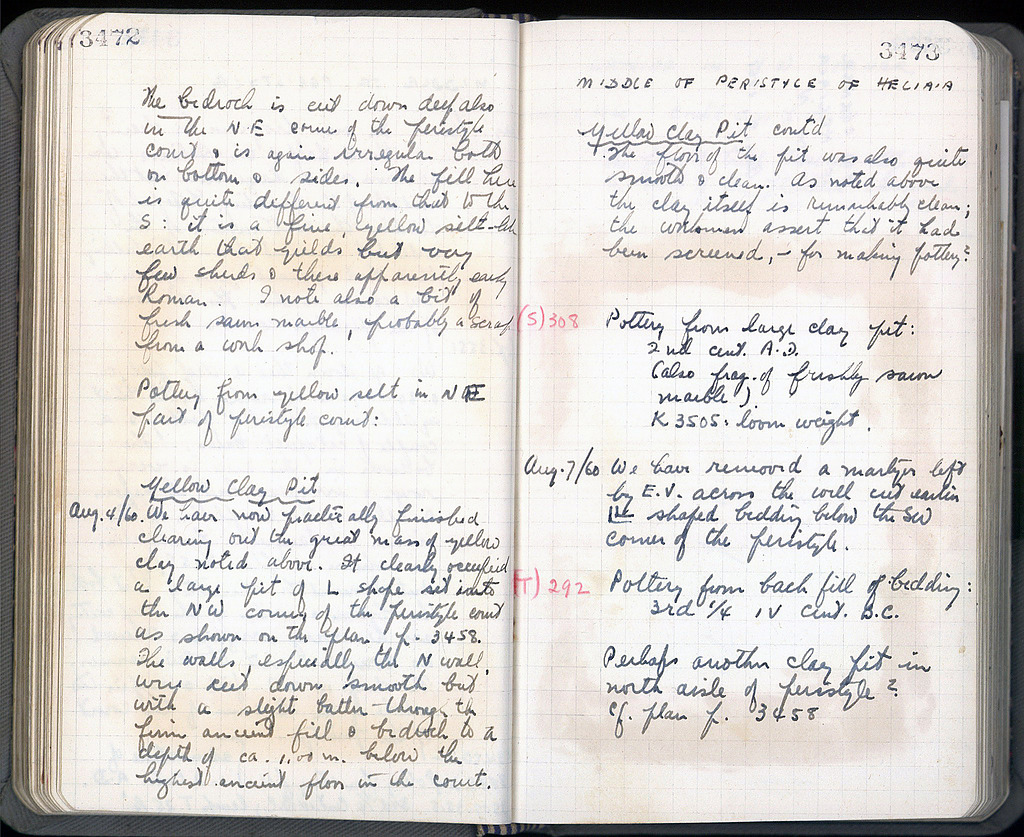 3472
The bedrock is cut down deep also
in the N.E corner of the peristyle
court & is again irregular both
on bottom & sides. The fill here
is quite different from that to the
S: it is a fine, yellow silt-like
earth that yields but very
few sherds & these apparently early
Roman. I note also a bit of
fresh sawn marble, probably a scrap
from a work shop.
Pottery from yellow silt in NE
part of peristyle court:
Yellow Clay Pit
Aug. 4/60. We have now practically finished
clearing out the great mass of yellow
clay noted above. It clearly occupied
a large pit of L shape set into
the NW corner of the peristyle court
as shown on the plan p. 3458.
The walls, especially the N wall,
were cut down smooth but
with a slight batter through the
firm ancient fill & bedrock to a
depth of ca. 1.00 m. below the
highest ancient floor in the court.
3473
MIDDLE OF PERISTYLE OF HELIAIA
Yellow Clay Pit contd
The floor of the pit was also quite
smooth & clean. As noted above
the clay itself is remarkably clean;
the workmen assert that it had
been screened, - for making pottery?
(S) 308 Pottery from large clay pit:
2nd cent. A.D.
(also frag. of freshly sawn
marble)
K 3505: loom weight.
Aug. 7/60 We have removed a martyra left
by E.V. across the well cut earlier
L shaped bedding below the SW
corner of the peristyle.
(T) 292 Pottery from back fill of bedding:
3rd 1/4 IV cent. B.C.
Perhaps another clay pit in
north aisle of peristyle?
Cf. plan p. 3458